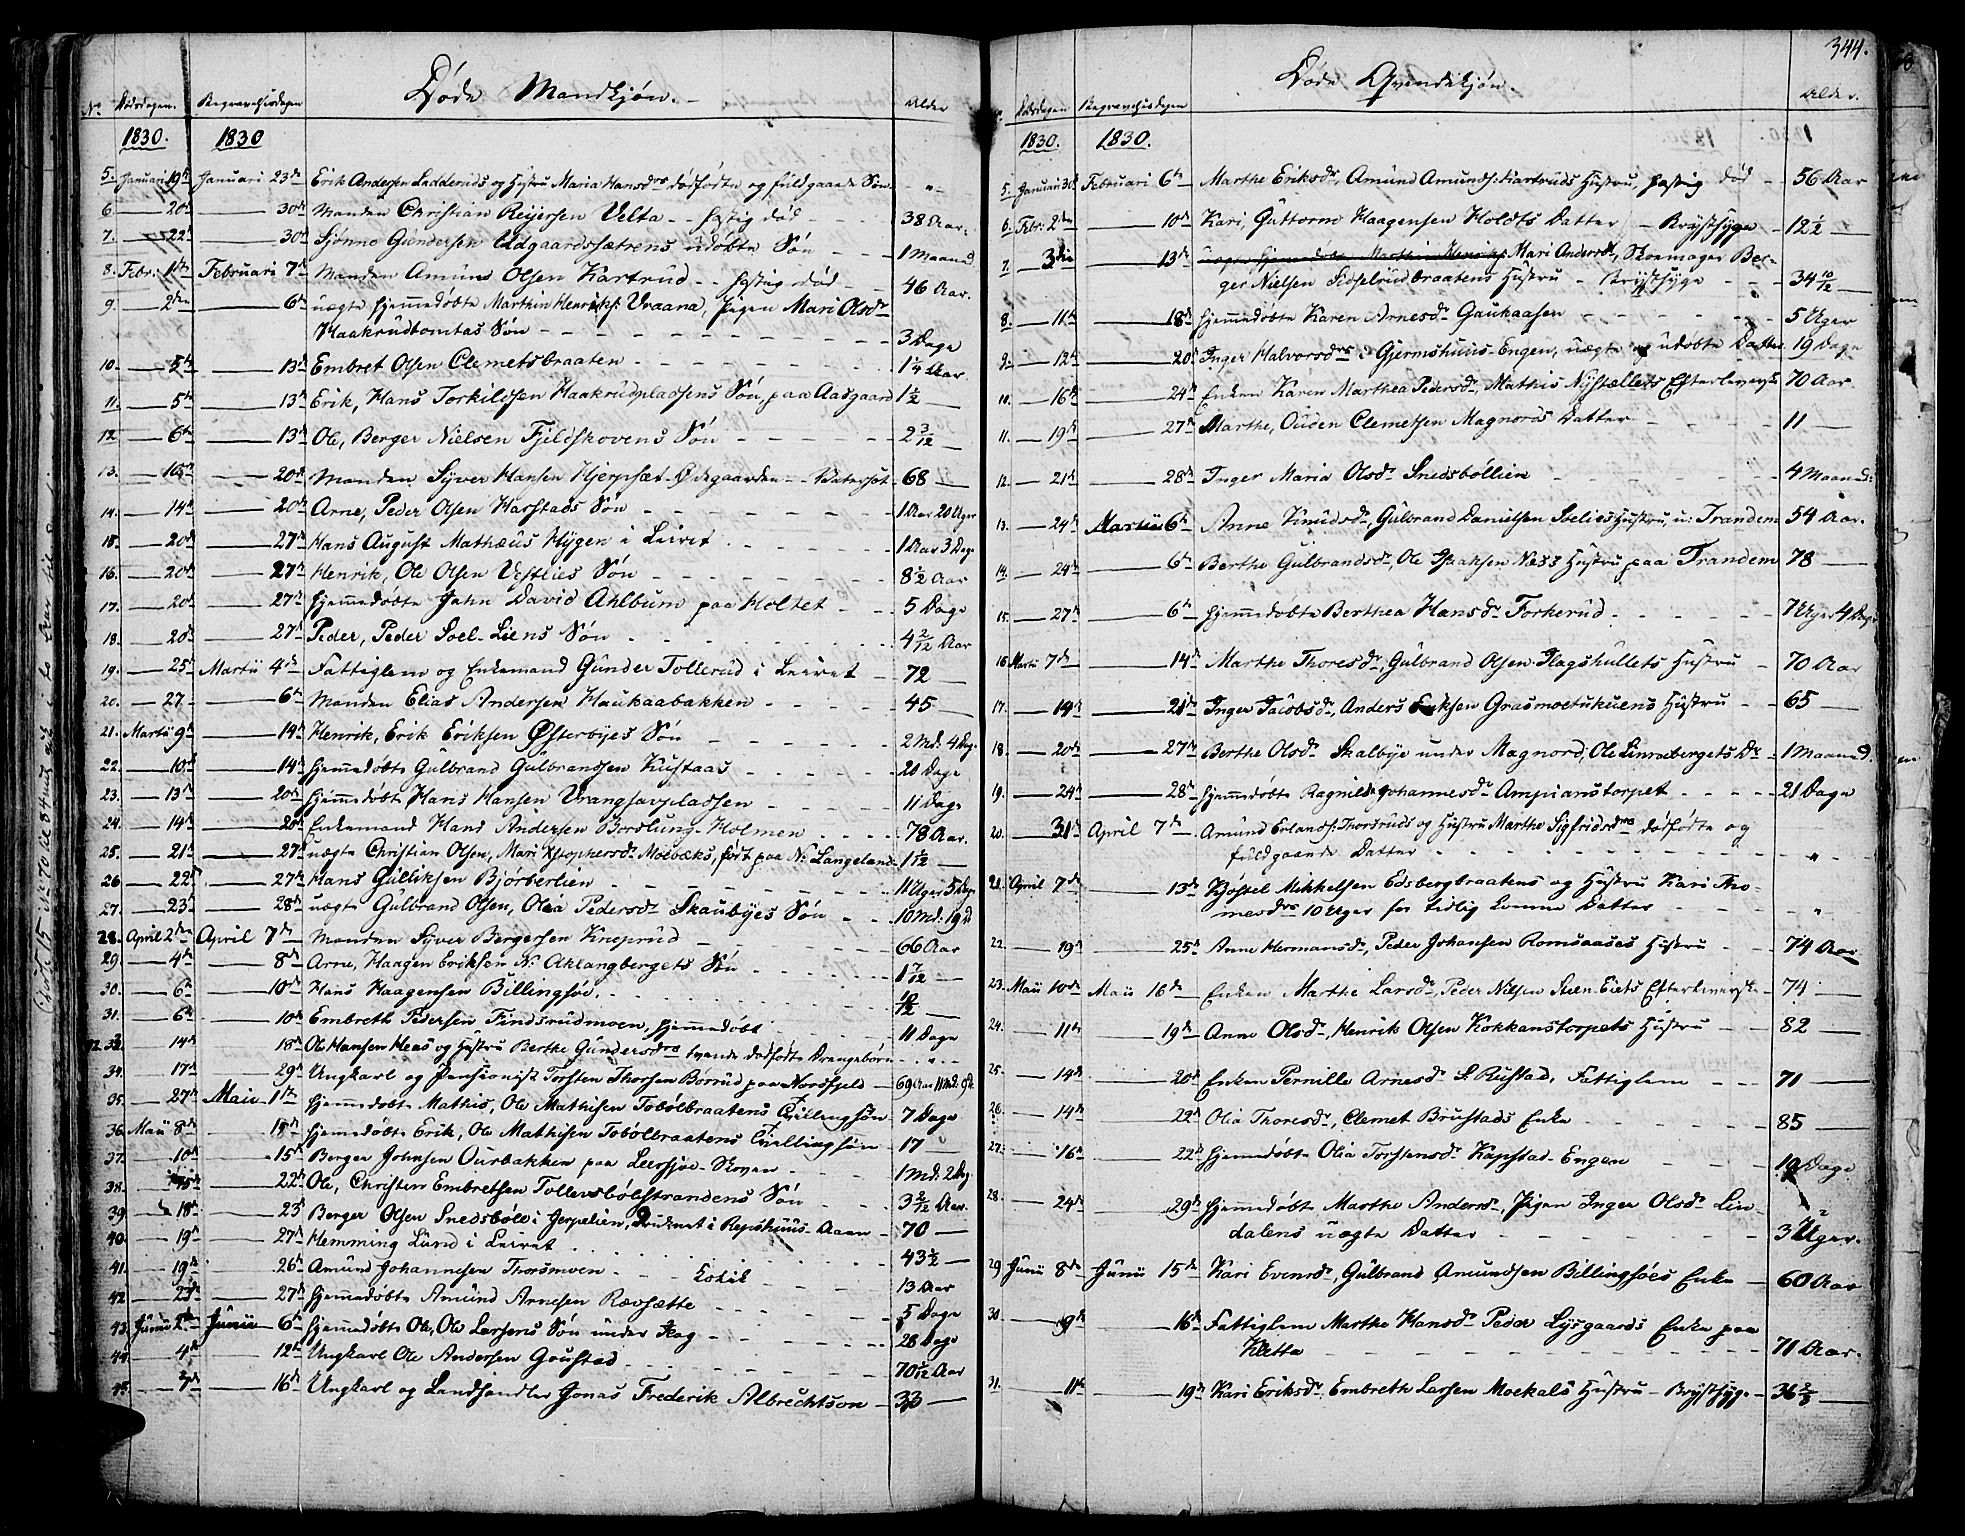 Døde Mandkjøn.
No Dødsdagen. Begravelsesdagen Alder
1830. 1830
5. Januari 19de Januari 23de Erik Andersen Ladderuds og Hustru Maria Hansdr dødfødte og fuldgaande Søn "
6. 20de 30de Manden Christian Reijersen Velta - hastig død 38 Aar.
7. 22de 30de Sjønno Gundersen Udgaardssætrens udøbte Søn 1 Maaned
8. Febr. 1ste Februari 7de Manden Amund Olsen Kartrud - hastig død 46 Aar.
9. 2den 6te uægte hjemmedøbte Marthin Henriks. Vraana, Pigen Mari Olsdr
Haakrudtomtas Søn 3 Dage
10. 5te 13de Embret Olsen Clemetsbraaten 1 1/4 Aar.
11. 5te 13de Erik, Hans Torkildsen Haakrudpladsens Søn, paa Aasgaard 1 1/2
12 6te 13de Ole, Berger Nielsen Fjeldskovens Søn 2 3/12
13. 10de 20de Manden Syver Hansen Hjerpsæt-Ødegaarden - Vatersot 68
14. 14de 20de Arne, Peder Olsen Harstads Søn 1 Aar 20 Uger
15. 20de 27de Hans August Mathæus Hygen i Leiret 1 Aar 3 Dage
16. 20de 27de Henrik, Ole Olsen Vestlies Søn 8 1/2 Aar
17. 20de 27de hjemmedøbte John David Ahlbum paa Holtet 5 Dage
18. 20de 27de Peder, Peder Soel-Liens Søn 4 2/12 Aar
19. 25de Martii 4de Fattiglem og Enkemand Gunder Tollerud i Leiret 72
20. 27 6te Manden Elias Andersen Haukaabakken 45
21. Martii 9de 14de Henrik, Erik Eriksen Østerbyes Søn 2 Md. 4 Dag.
22. 10de 14de hjemmedøbte Gulbrand Gulbrandsen Kustaas 20 Dage
23. 13de 20de hjemmedøbte Hans Hansen Vrangsavpladsen 11 Dage
24. 14de 20de Enkemand Hans Andersen Borslung-Holmen 78 Aar.
25. 21de 27de uægte Christian Olsen, Mari Xstophersdr Moebæks, ført paa N. Langeland 1 1/12
26 22de 27de Hans Gulliksen Bjørberlien 11 Uger 5 Dage
27. 23de 28de uægte Gulbrand Olsen, Olea Pedersdr Skaubyes Søn 10 Md. 19 D
28. April 2den April 7de Manden Syver Bergersen Kneprud 66 Aar
29. 4de 8de Arne, Haagen Eriksen N. Aklangbergets Søn 1 7/12
30. 6te 10de Hans Haagensen Billingsøe. 10/12
31. 6te 10de Embreth Pedersen Findsrudmoen, hjemmedøbt 11 Dage
32. 33. 14de 18de Ole Hansen Meas og Hustru Berthe Gundersdrs tvende dødfødte Drengebørn "
34. 17de 29de Ungkarl og Pensionist Torsten Thorsen Børrud paa Nordfjeld 69 Aar 11 Md.
35. 27de Maii 1ste hjemmedøbte Mathis, Ole Mathisen Tobølbraatens Tvillingsøn 7 Dage
36. Maii 8de 15de hjemmedøbte Erik, Ole Mathisen Tobølbraatens Tvillingsøn 17
37. 10de 15de Berger Johnsen Ourbakken paa Leersjøe-Skoven 1 Md. 2 Dag
38. 15de 22de Ole, Christen Embretsen Tollevsbølstrandens Søn 3 2/12 Aar.
39. 18de 23de Berger Olsen Snedsbøle i Jerpelien, Druknet i Repshuus-Aaen 70
40. 19de 27de Hemming Lund i Leiret 43 1/2
41. 19de 26de Amund Johannesen Thorsmoen Kolik 13 Aar
42. 23de 27de hjemmedøbte Amund Arnesen Rævsætte 5 Dage
43. Junii 2den Junii 6te hjemmedøbte Ole, Ole Larsens Søn under Skag 28 Dage
44. 4de 12te Ungkarl Ole Andersen Goustad 70 1/12 Aar
45. 7de 16de Ungkarl og Landhandler Jonas Frederik Albrechtson 33
344.
Døde Qvindekjøn.
Dødsdagen Begravelsesdagen Alder.
1830. 1830.
5. Januari 30te Februari 6te Marthe Eriksdr, Amund Amunds. Kartruds Hustru, hastig død 56 Aar
6. Febr. 2den 10de Kari, Guttorm Haagensen Holdts Datter - Brystsyge 12 1/2
7. 3die 13de uægte hjemmedøbte Marthin Henriks. Mari Andersdr, Skoemager Ber-
ger Nielsen Sidselrudbraatens Hustru - Brystsyge 34 10/12
8. 11te 18de hjemmedøbte Karen Arnesdr Gaukaasen 5 Uger
9. 12te 20de Inger Halvorsdrs i Gjermshuus-Engen, uægte udøbte Datter 19 Dage
10. 16de 24de Enken Karen Marthea Pedersdr, Mathis Nystællets Efterleverske 70 Aar.
11. 19de 27de Marthe, Ouden Clemetsen Magnors Datter 11
12. 21de 28de Inger Maria Olsdr Snedsbøllien 4 Maaned.
13. 24de Martii 6te Anne Knudsdr, Gulbrand Danielsen Soelies Hustru, u. Trandem 54 Aar.
14. 24de 6te Berthe Gulbrandsdr, Ole Isaaksen Næss Hustru paa Trandem 78
15. 27de 6te hjemmedøbte Berthea Hansdr Torkerud 7 Uger 4 Dage
16 Martii 7de 14de Marthe Thoresdr, Gulbrand Olsen Hagshullets Hustru 70 Aar
17. 14de 21de Inger Jacobsdr, Anders Eriksen Grasmoetukuens Hustru 65
18. 20de 27de Berthe Olsdr Skalbye under Magnord, Ole Linnebergets Dr 1 Maaned.
19. 24de 28de hjemmedøbte Ragnild Johannesdr Ampianstorpet 21 Dage
20. 31te April 7de Amund Erlands. Thorsruds og Hustru Marthe Sigfridsdrs dødfødte og
fuldgaaende Datter "
21. April 7de 13de Kjøstel Mikkelsen Edsbergbraatens og Hustru Kari Tho-
mesdrs 10 Uger for tidlig komne Datter "
22. 19de 25de Anne Hermansdr, Peder Johansen Romsaases Hustru 74 Aar
23. Maii 10de Maii 16de Enken Marthe Larsdr, Peder Nilsen Steen-Eiets Efterleverske 74
24. 11te 19de Anne Olsdr, Henrik Olsen Kokkanstorpets Hustru 82
25. 14de 20de Enken Pernille Arnesdr S. Rustad, Fattiglem 71
26. 14de 22de Olia Thoresdr, Clemet Brustads Enke 85
27. 16de 22de hjemmedøbte Olia Torstensdr Kapstad-Engen 19 Dage
28. 24de 29de hjemmedøbte Marthe Andersdr, Pigen Inger Olsdr Lin-
dalens uægte Datter 3 Uger.
29. Junii 8de Junii 15de Kari Evensdr, Gulbrand Amundsen Billingsøes Enke 60 Aar
30. 9de 16de Fattiglem Marthe Hansdr Peder Lysgaards Enke paa
Kletta 71 Aar.
31. 11te 19de Kari Eriksdr, Embreth Larsen Moekals Hustru - Brystsyge 36